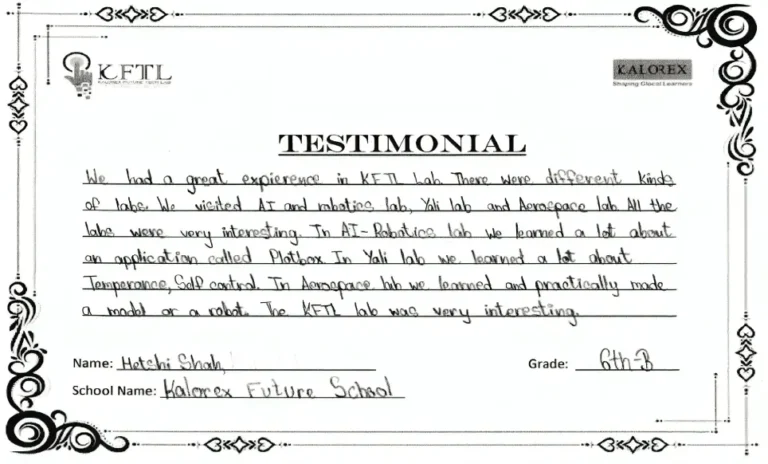 KFTL
KALOREX
Shaping Glocal Learners
TESTIMONIAL
We had a great expierence in KFTL Lab. There were different kinds
of labs. We visited AI and robotics lab, Yali lab and Aerospace lab. All the
labs were very interesting. In AI-Robotics lab we learned a lot about
an application called Plotbox. In Yali lab we learned a lot about
Temperance, Self control. In Aerospace lab we learned and practically made
a model or a robot. The KFTL lab was very interesting.
Name: Hetshi Shah Grade: 6th-B
School Name: Kalorex Future School